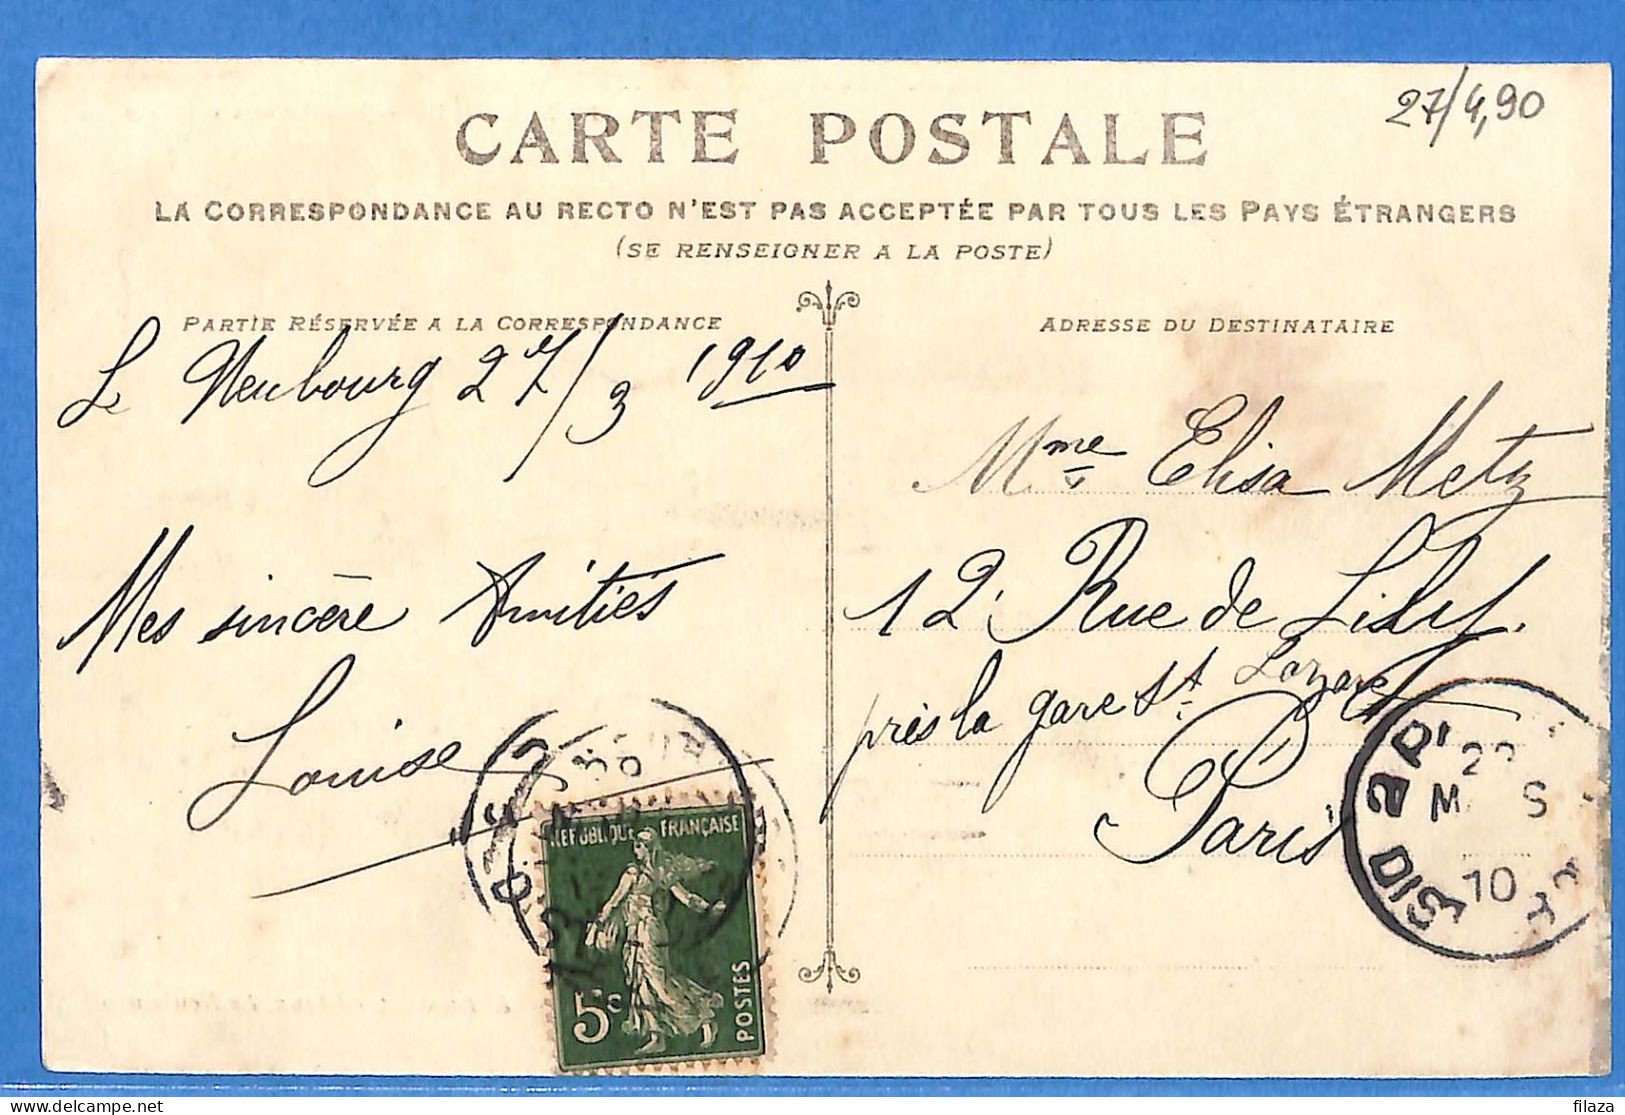 27/4,90
CARTE POSTALE
LA CORRESPONDANCE AU RECTO N'EST PAS ACCEPTÉE PAR TOUS LES PAYS ÉTRANGERS
(SE RENSEIGNER A LA POSTE)
PARTIE RÉSERVÉE A LA CORRESPONDANCE
Le Neubourg 27/3 1910
Mes sincère Amitiés
Louise
ADRESSE DU DESTINATAIRE
Mme Elisa Metz
12 Rue de
près la gare St Lazare
Paris
REPUBLIQUE FRANÇAISE
5c
POSTES
DIS
10
delcampe.net
filaza